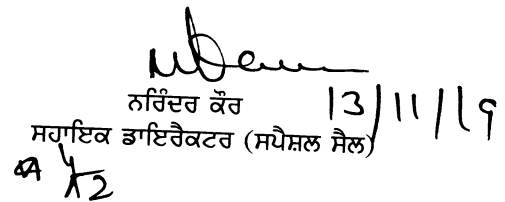 ਨਰਿੰਦਰ ਕੌਰ 13/11/19
ਸਹਾਇਕ ਡਾਇਰੈਕਟਰ (ਸਪੈਸ਼ਲ ਸੈਲ)